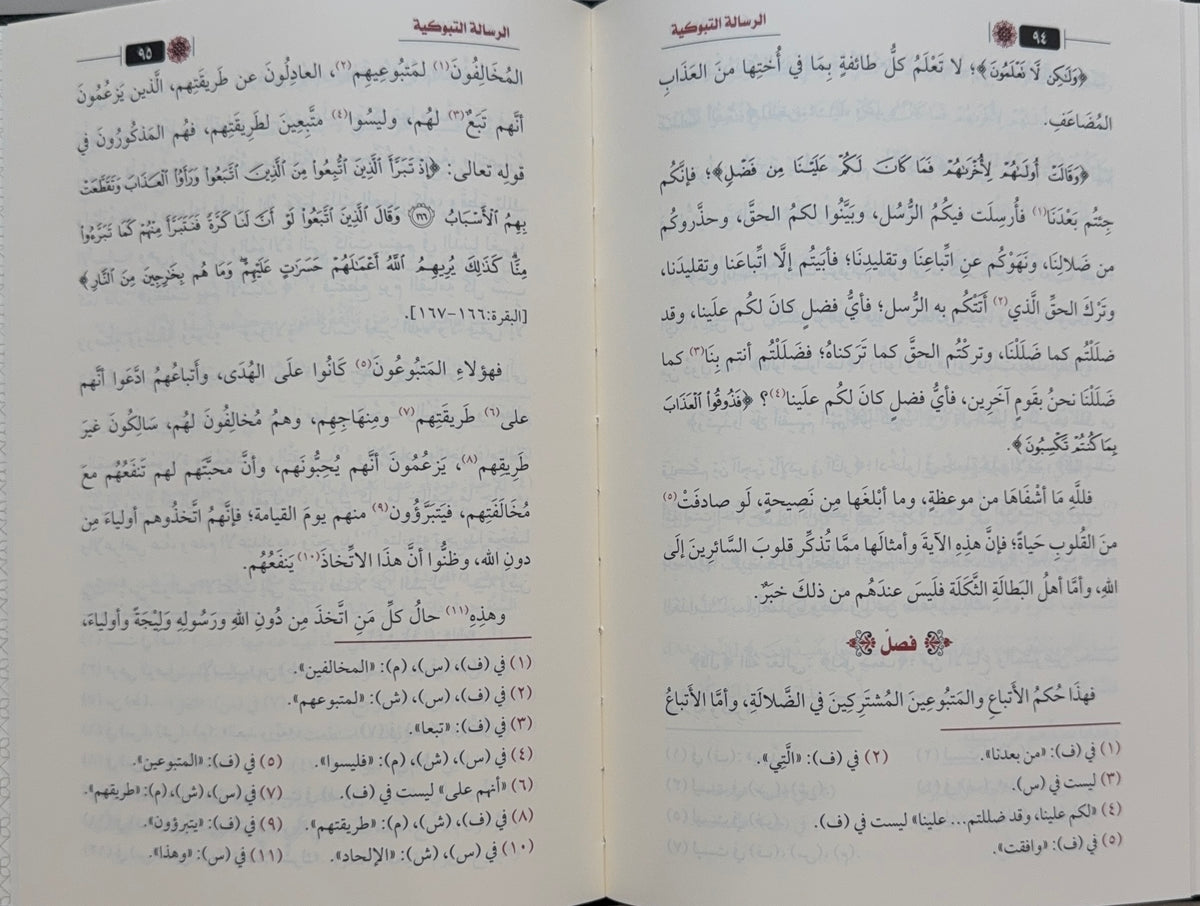 الرسالة التبوكية
٩٤
﴿وَلَٰكِن لَّا تَعْلَمُونَ﴾؛ لا تَعْلَمُ كلُّ طائفةٍ بِمَا في أُختِها منَ العَذَابِ
المُضَاعَفِ.
﴿وَقَالَتْ أُولَىٰهُمْ لِأُخْرَىٰهُمْ فَمَا كَانَ لَكُمْ عَلَيْنَا مِن فَضْلٍ﴾؛ فإنَّكُم
جِئتُم بَعْدَنَا(١) فأُرسِلَت فيكُمُ الرُّسُل، وبَيَّنُوا لكمُ الحقَّ، وحذَّروكُم
من ضَلالِنَا، ونَهَوْكُم عنِ اتِّباعِنَا وتقليدِنَا؛ فأبَيتُم إلَّا اتِّباعَنا وتقليدَنا،
وتَرْكَ الحقِّ الَّذي(٢) أَتَتْكُم به الرُّسل؛ فأيُّ فضلٍ كانَ لكُم علَينا، وقد
ضلَلْتُم كما ضَلَلْنَا، وتركتُم الحقَّ كما تَركناهُ؛ فضَلَلْتُم أنتم بِنَا(٣) كما
ضَلَلْنَا نحنُ بقَومٍ آخَرِين، فأيُّ فضلٍ كانَ لكُم علَينا(٤)؟ ﴿فَذُوقُوا۟ ٱلْعَذَابَ
بِمَا كُنتُمْ تَكْسِبُونَ﴾.
فللَّهِ مَا أشْفَاهَا من موعظةٍ، وما أبْلغَها مِن نَصِيحةٍ، لَو صادفَتْ(٥)
منَ القُلوبِ حَياةً؛ فإنَّ هذِهِ الآيةَ وأمثالَها ممَّا تُذكِّر قلوبَ السَّائرِينَ إلَى
اللهِ، وأمَّا أهلُ البَطالَةِ الثَّكَلَة فلَيسَ عندَهُم من ذلكَ خبَرٌ.
فصلٌ
فهذَا حُكمُ الأتباعِ والمَتبُوعِينَ المُشتَرِكِينَ في الضَّلالَةِ، وأمَّا الأتباعُ
(١) في (ف): «من بعدنا». (٢) في (ف): «الَّتِي».
(٣) ليست في (س).
(٤) «لكم علينا، وقد ضللتم... علينا» ليست في (ف).
(٥) في (ف): «وافقت».
الرسالة التبوكية
٩٥
المُخَالِفُونَ(١) لمَتبُوعِيهِم(٢)، العادِلُونَ عن طَريقَتِهم، الَّذين يَزعُمُونَ
أنَّهم تَبَعٌ(٣) لهُم، وليسُوا(٤) متَّبِعِينَ لطَرِيقَتِهِم، فهُم المَذكُورُونَ في
قولِه تعالى: ﴿إِذْ تَبَرَّأَ ٱلَّذِينَ ٱتُّبِعُوا۟ مِنَ ٱلَّذِينَ ٱتَّبَعُوا۟ وَرَأَوُا۟ ٱلْعَذَابَ وَتَقَطَّعَتْ
بِهِمُ ٱلْأَسْبَابُ ١٦٦ وَقَالَ ٱلَّذِينَ ٱتَّبَعُوا۟ لَوْ أَنَّ لَنَا كَرَّةً فَنَتَبَرَّأَ مِنْهُمْ كَمَا تَبَرَّءُوا۟
مِنَّا ۗ كَذَٰلِكَ يُرِيهِمُ ٱللَّهُ أَعْمَٰلَهُمْ حَسَرَٰتٍ عَلَيْهِمْ ۖ وَمَا هُم بِخَٰرِجِينَ مِنَ ٱلنَّارِ﴾
[البقرة:١٦٦-١٦٧].
فهؤلاءِ المَتبُوعُونَ(٥) كَانُوا علَى الهُدَى، وأتباعُهمُ ادَّعَوا أنَّهم
على(٦) طَريقَتِهِم(٧) ومِنهَاجِهِم، وهمُ مُخَالِفُونَ لهُم، سَالِكُونَ غيرَ
طَرِيقِهم(٨)، يَزعُمُونَ أنَّهم يُحِبُّونَهم، وأنَّ محبَّتَهم لهم تَنفَعُهُم معَ
مُخَالَفَتِهِم، فيَتبَرَّؤُون(٩) منهم يومَ القيامة؛ فإنَّهمُ اتَّخذُوهم أولياءَ مِن
دونِ الله، وظَنُّوا أنَّ هذَا الاتِّخاذَ(١٠) يَنفَعُهُم.
وهذِهِ(١١) حالُ كلِّ مَنِ اتَّخذَ مِن دُونِ اللهِ ورَسُولِهِ وَلِيْجَةً وأولياءَ،
(١) في (ف)، (س)، (م): «المخالفين».
(٢) في (ف)، (س)، (ش): «لمتبوعهم».
(٣) في (ف): «تبعا».
(٤) في (س)، (ش)، (م): «فليسوا». (٥) في (ف): «المتبوعين».
(٦) «أنهم على» ليست في (ف). (٧) في (س)، (ش)، (م): «طريقهم».
(٨) في (ف)، (ش)، (م): «طريقتهم». (٩) في (ف): «يتبرؤون».
(١٠) في (س)، (ش): «الإلحاد». (١١) في (س): «وهذا».